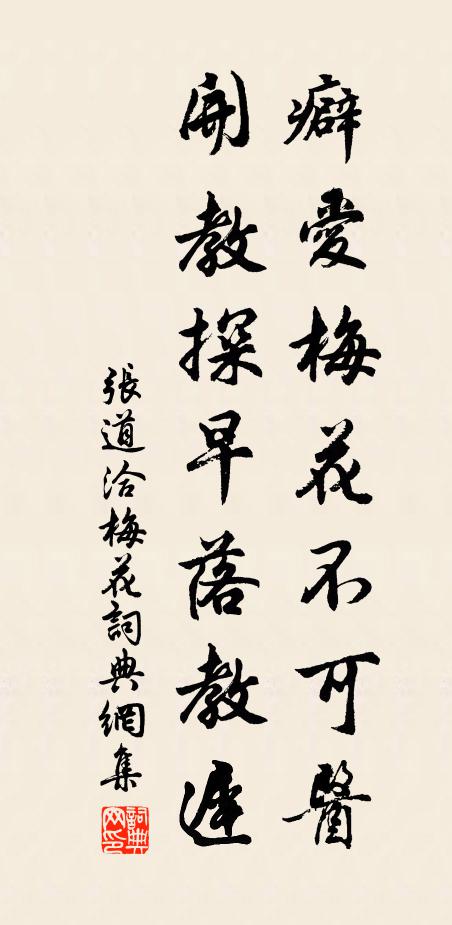 癖愛梅花不可醫
開教探早落教遲
張道洽梅花詞典網集
詞典网印